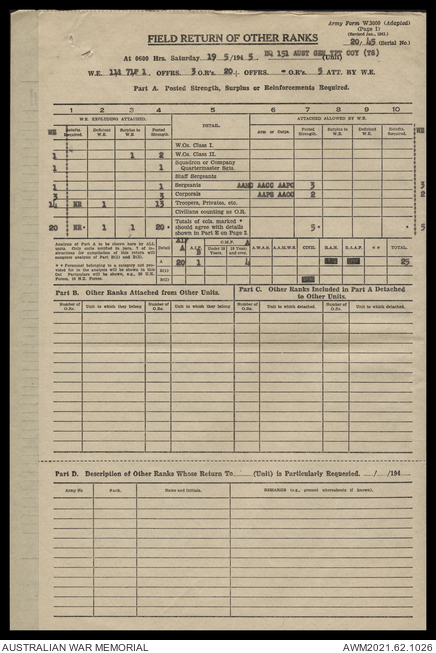 Army Form W.3009 (Adapted)
(Page 1)
(Revised Jan., 1943.)
FIELD RETURN OF OTHER RANKS
20/45 (Serial No.)
At 0600 Hrs. Saturday 19 5/194 5 HQ 151 AUST GEN TPT COY (TS) (Unit)
W.E. OFFRS. 3 O.R's. 20+ OFFRS. - O.R's. 5 ATT. BY W.E.
Part A. Posted Strength, Surplus or Reinforcements Required.
1 2 3 4 5 6 7 8 9 10
W.E. EXCLUDING ATTACHED. DETAIL. ATTACHED ALLOWED BY W.E.
WE Reinfts. Required. Deficient W.E. Surplus to W.E. Posted Strength. Arm or Corps. Posted Strength. Surplus to W.E. Deficient W.E. Reinfts. Required. WE
W.Os. Class I.
1 1 2 W.Os. Class II.
1 1 Squadron or Company
Quartermaster Sgts.
Staff Sergeants
1 1 Sergeants AAMC AACC AAPC 3 3
3 3 Corporals AAPS AACC 2 2
14 NR 1 13 Troopers, Privates, etc.
Civilians counting as O.R.
20 NR * 1 1 20 * Totals of cols. marked *
should agree with details
shown in Part E on Page 2. 5 * * 5
Analysis of Part A to be shown here by ALL
units.
Detail AIF A A.I.F. B C.M.F. Under 19 Years. 19 Years and over. A.W.A.S. A.A.M.W.S. CIVIL R.A.N. R.A.A.F. * * TOTAL.
A 20 1 4 25
B(1)
B(2)
Part B. Other Ranks Attached from Other Units.
Part C. Other Ranks Included in Part A Detached
to Other Units.
Number of O.Rs. Unit to which they belong Number of O.Rs. Unit to which they belong Number of O.Rs. Unit to which detached. Number of O.Rs. Unit to which detached.
Part D. Description of Other Ranks Whose Return To (Unit) is Particularly Requested. / /194
Army No Rank. Name and Initials. REMARKS (e.g., present whereabouts if known).
AUSTRALIAN WAR MEMORIAL AWM2021.62.1026